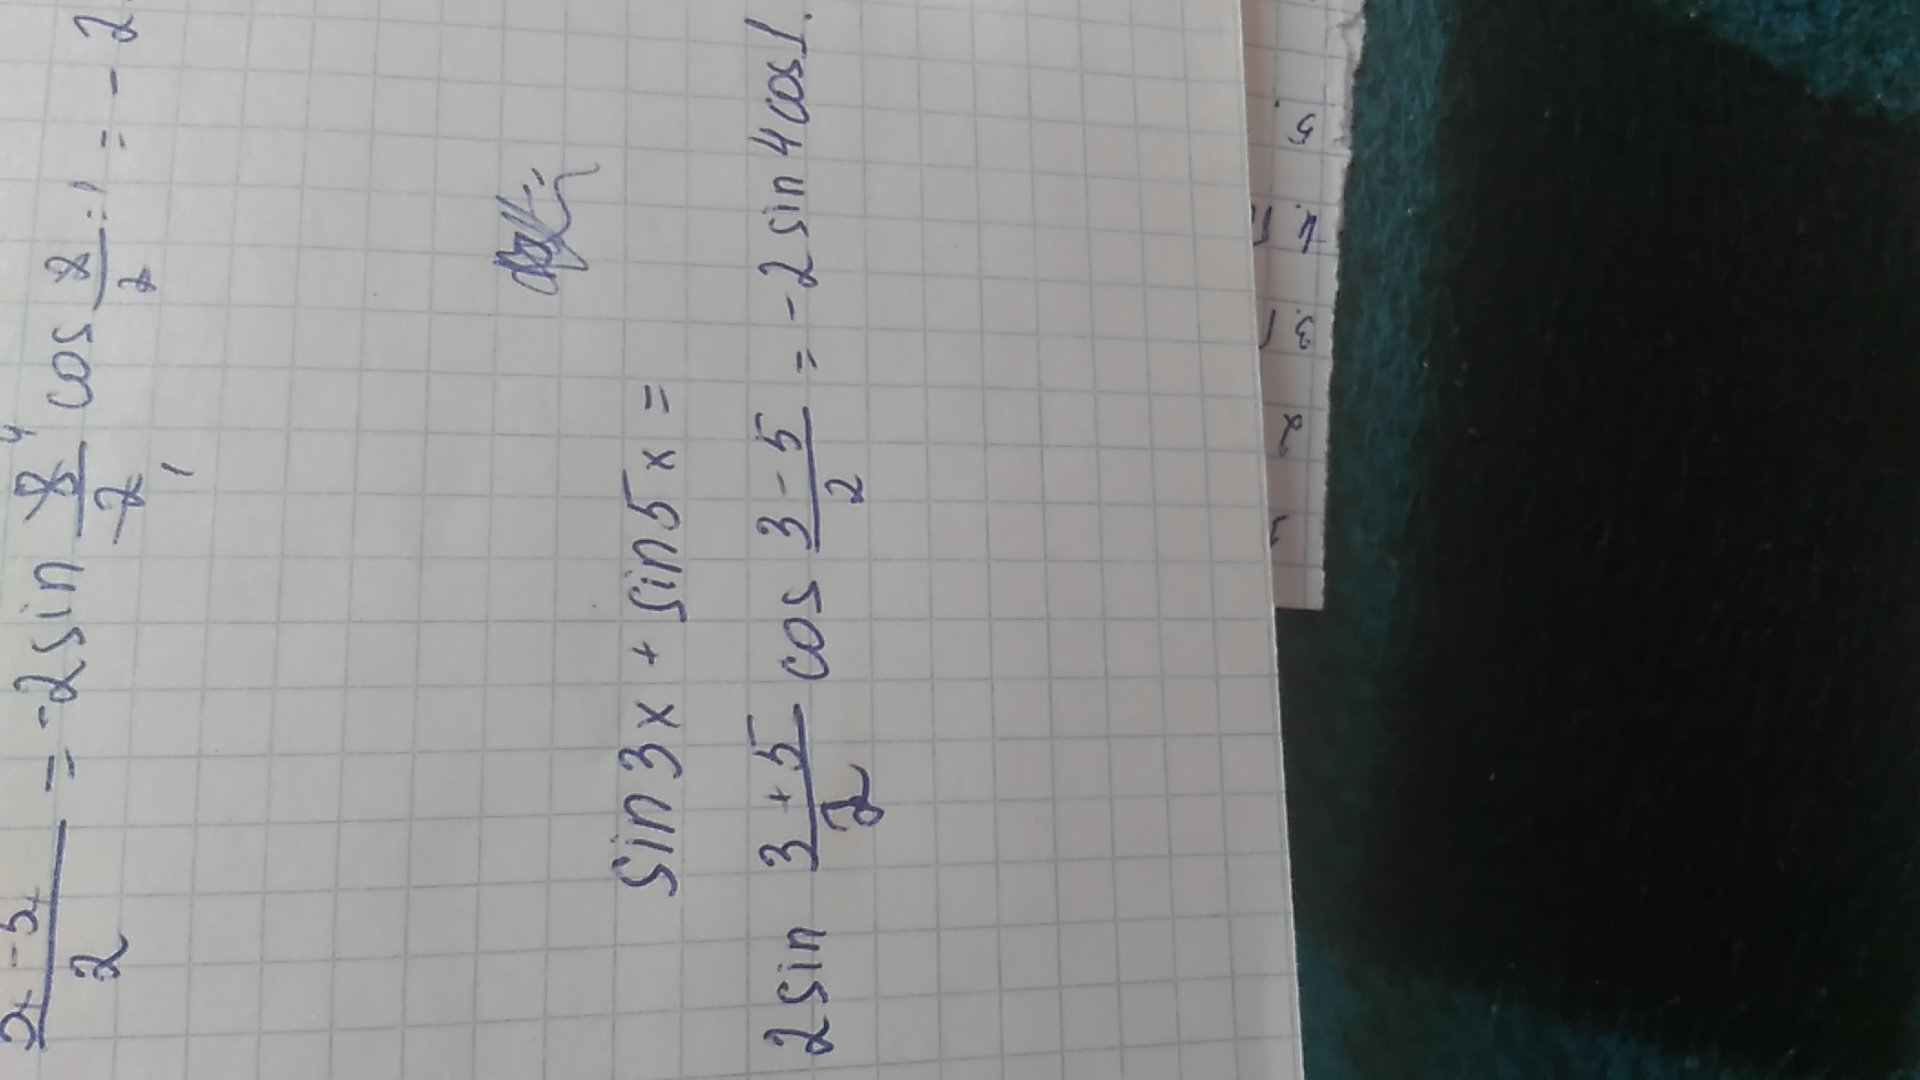 3x-5x/2 = -2sin 8/2 4 1 cos 2/2 : 1 = -2
sin3x + sin5x =
2sin 3+5/2 cos 3-5/2 = -2sin4cos1.
1 2 3. 4. 5.